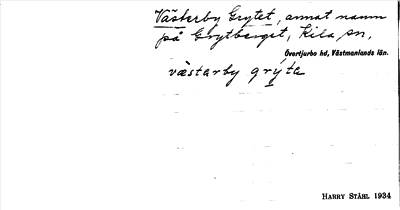 Västerby Grytet, annat namn
på Grytberget, Kila sn,
Övertjurbo hd, Västmanlands län.
västarby grýta
HARRY STÅHL 1934